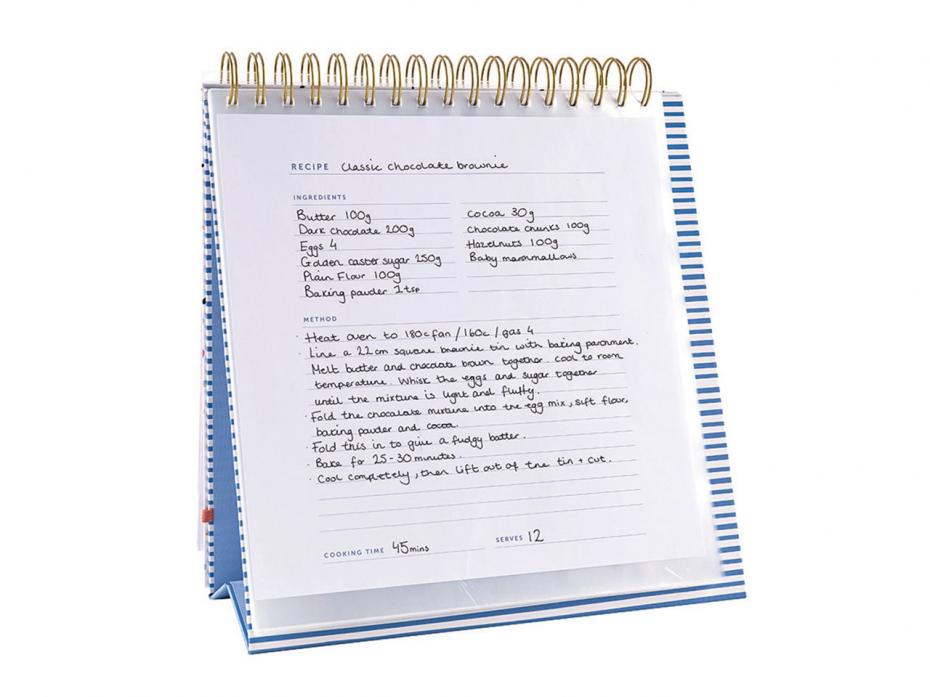 RECIPE Classic chocolate brownie
INGREDIENTS
Butter 100g
Dark chocolate 200g
Eggs 4
Golden caster sugar 250g
Plain Flour 100g
Baking powder 1tsp
Cocoa 30g
Chocolate chunks 100g
Hazelnuts 100g
Baby marshmallows
METHOD
· Heat oven to 180c fan / 160c / gas 4
· Line a 22cm square brownie tin with baking parchment.
Melt butter and chocolate brown together. Cool to room
temperature. Whisk the eggs and sugar together
until the mixture is light and fluffy.
· Fold the chocolate mixture into the egg mix, sift flour,
baking powder and cocoa.
· Fold this in to give a fudgy batter.
· Bake for 25-30 minutes.
· Cool completely, then lift out of the tin + cut.
COOKING TIME 45mins
SERVES 12